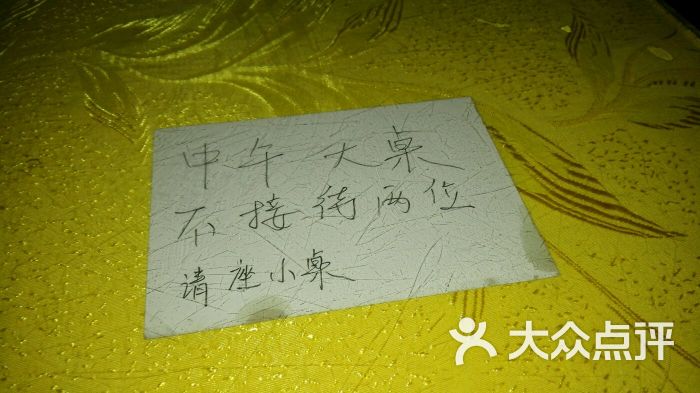 中午大桌
不接待两位
请座小桌
大众点评